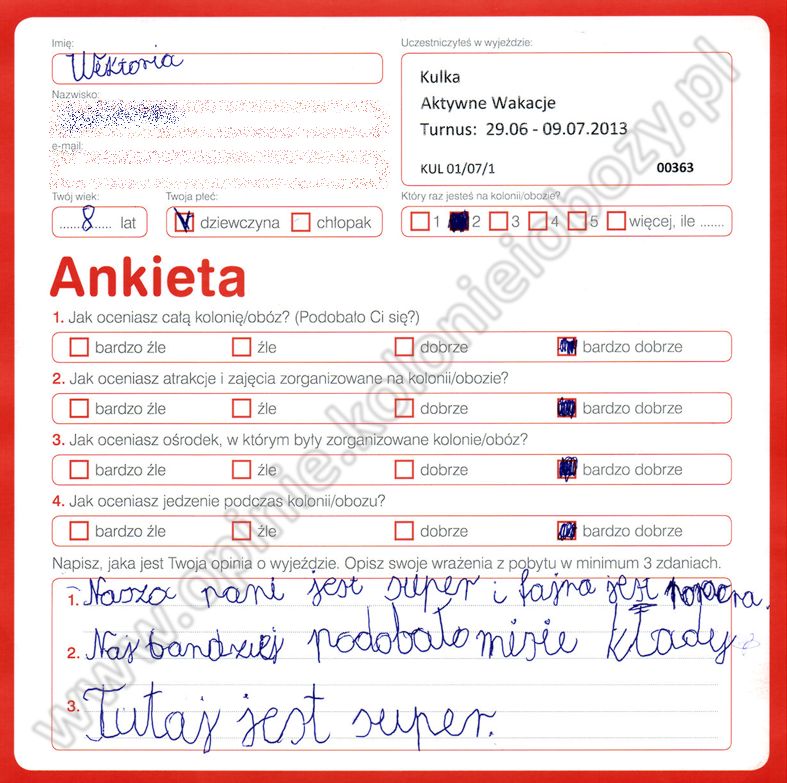 Imię:
Wiktoria
Uczestniczyłeś w wyjeździe:
Kulka
Aktywne Wakacje
Turnus: 29.06 - 09.07.2013
KUL 01/07/1 00363
Nazwisko:
e-mail:
Twój wiek:
8 lat
Twoja płeć:
dziewczyna chłopak
Który raz jesteś na kolonii/obozie?
1 2 3 4 5 więcej, ile .......
Ankieta
1. Jak oceniasz całą kolonię/obóz? (Podobało Ci się?)
bardzo źle źle dobrze bardzo dobrze
2. Jak oceniasz atrakcje i zajęcia zorganizowane na kolonii/obozie?
bardzo źle źle dobrze bardzo dobrze
3. Jak oceniasz ośrodek, w którym były zorganizowane kolonie/obóz?
bardzo źle źle dobrze bardzo dobrze
4. Jak oceniasz jedzenie podczas kolonii/obozu?
bardzo źle źle dobrze bardzo dobrze
Napisz, jaka jest Twoja opinia o wyjeździe. Opisz swoje wrażenia z pobytu w minimum 3 zdaniach.
1. Nasza pani jest super i fajna jest
2. Najbardziej podobało misie kłady
3. Tutaj jest super.
www.opinie.kolonieiobozy.pl